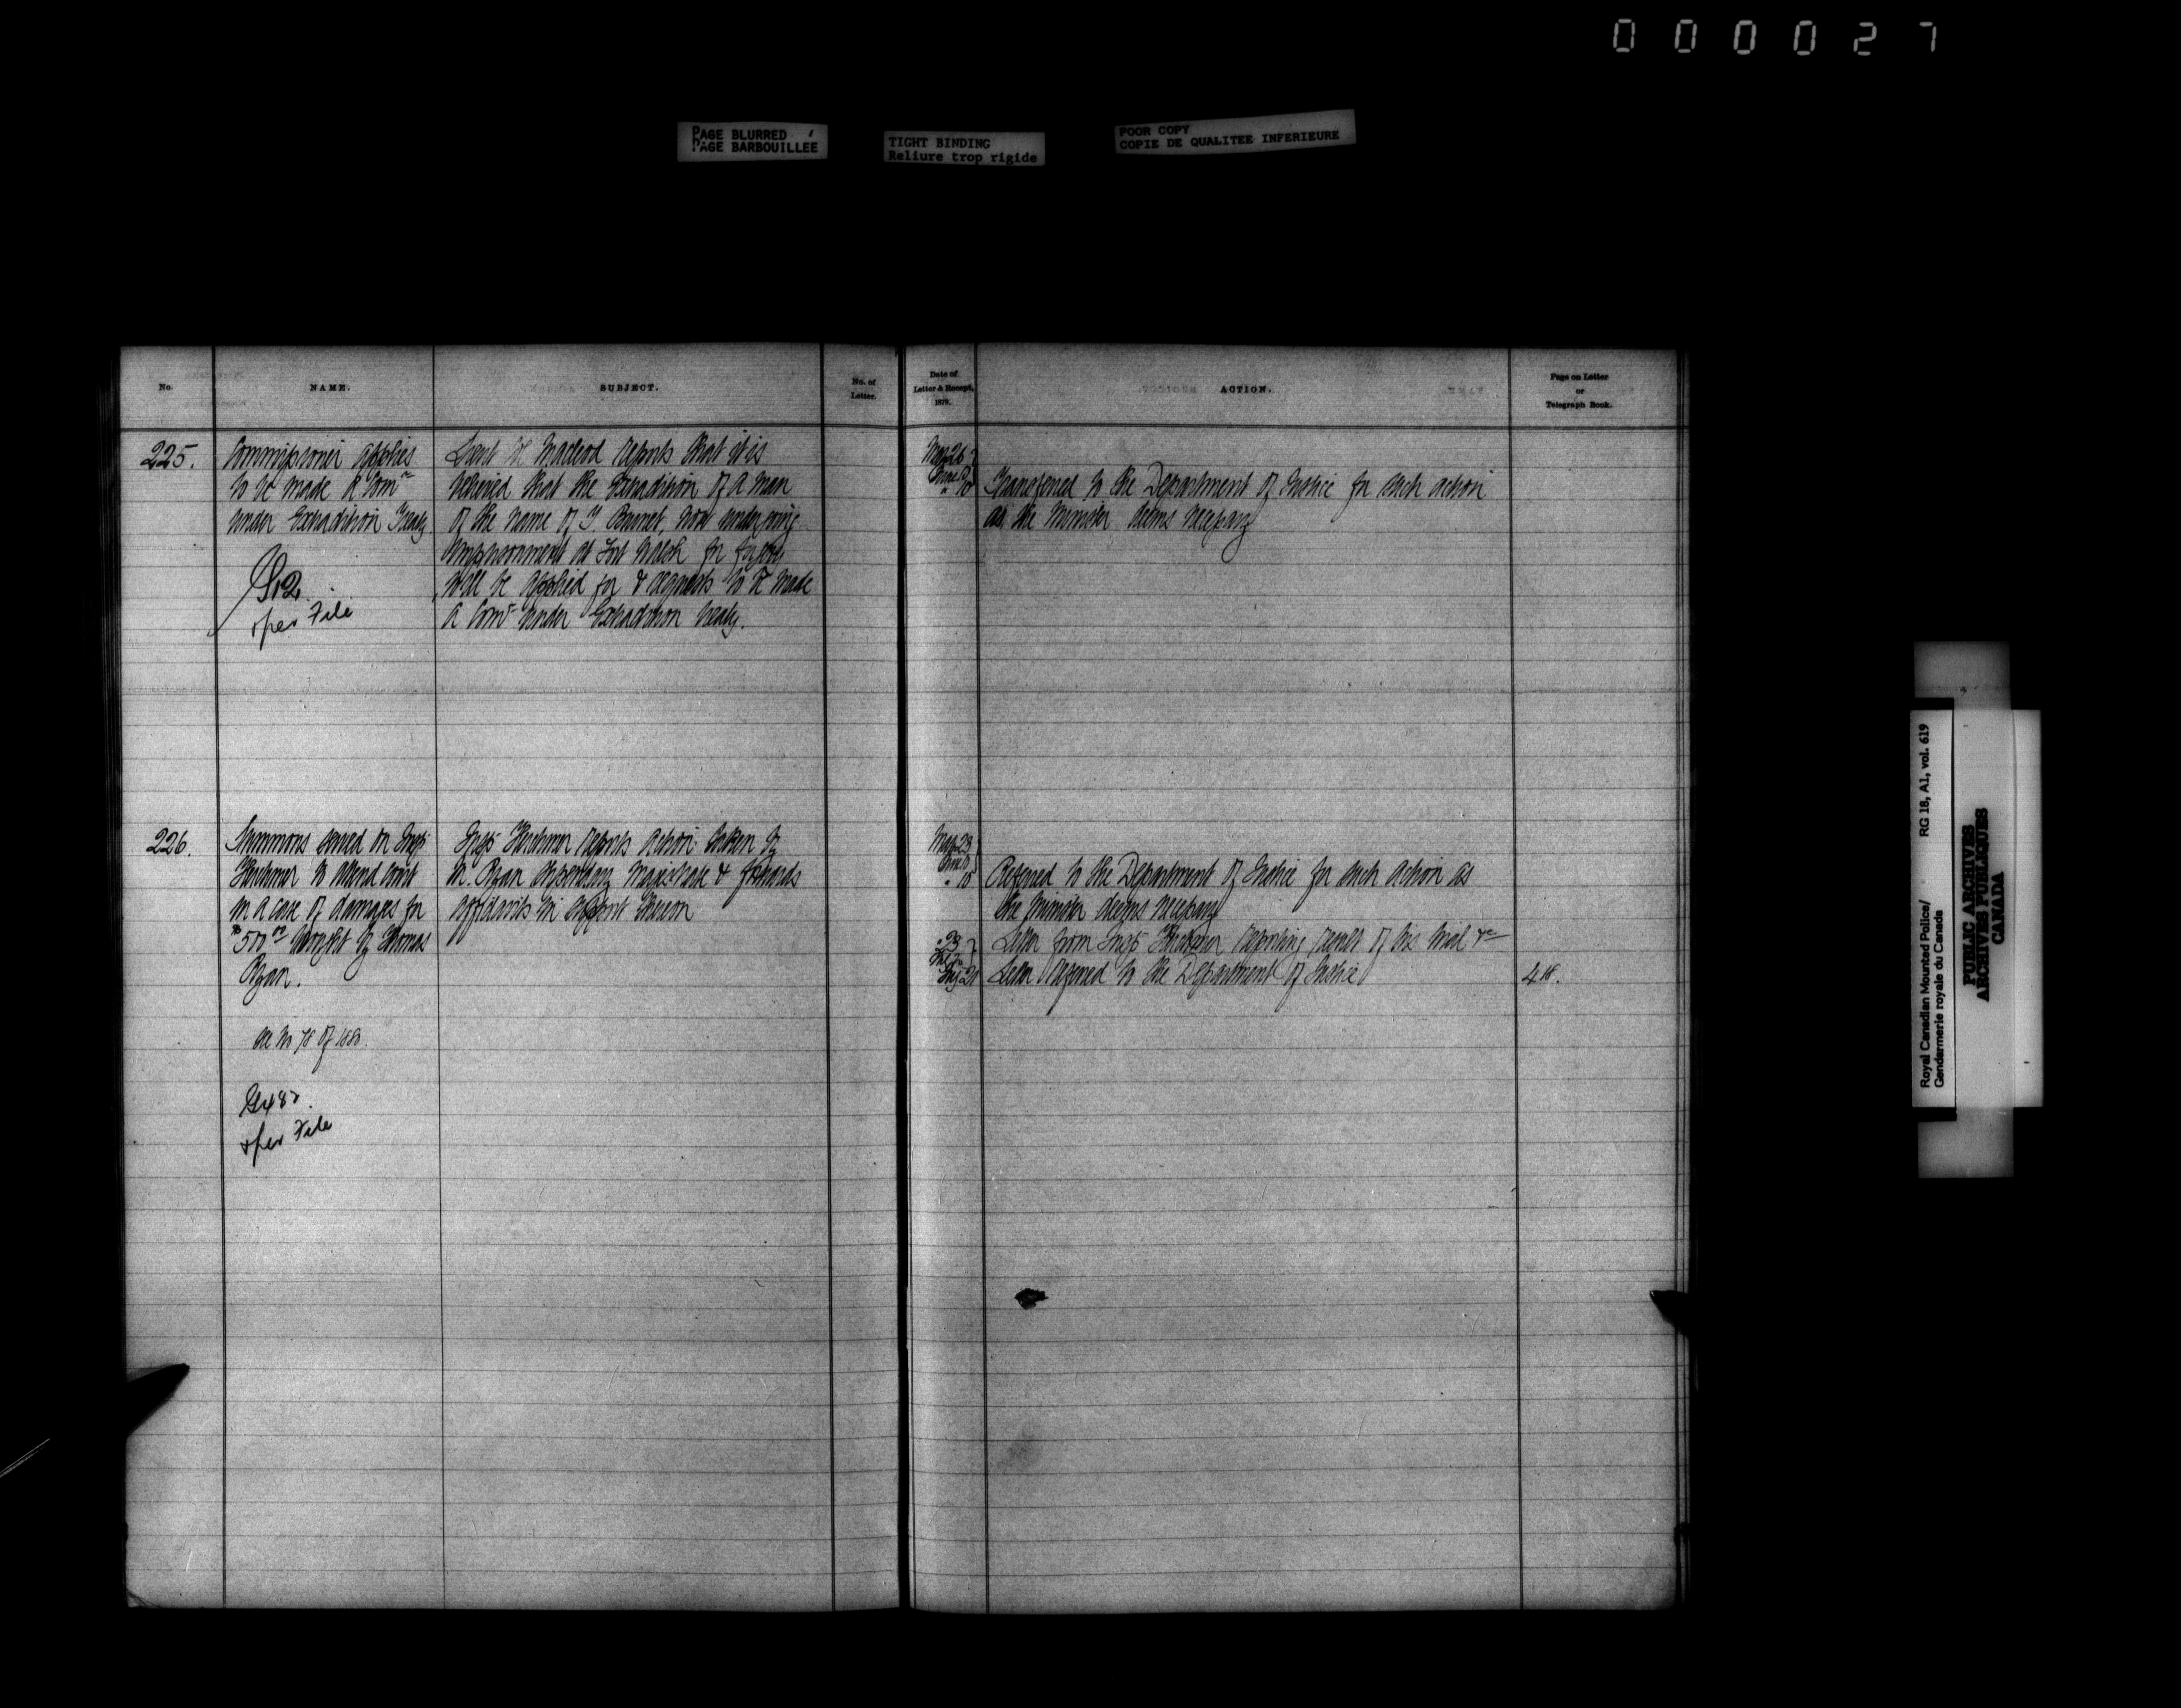 000027
PAGE BLURRED
PAGE BARBOUILLEE
TIGHT BINDING
Reliure trop rigide
POOR COPY
COPIE DE QUALITEE INFERIEURE
No.
NAME.
SUBJECT.
No. of
Letter.
Date of
Letter & Receipt,
1879.
ACTION.
Page on Letter
or
Telegraph Book.
225.
Commissioner applies
to be made a Comr
under Extradition Treaty
per File
Lieut Col Macleod reports that it is
believed that the Extradition of a man
of the name of J. Brunet, now undergoing
imprisonment at Fort Walsh for
will be applied for & requests to be made
a Comr under Extradition Treaty.
May 26
June 10
" 10
Transferred to the Department of Justice for such action
as the Minister deems necessary
226.
Summons served on Insp.
Herchmer to attend Court
in a case of damages for
$500 00 brought by Thomas
Ryan.
See No 78 of 1880.
per File
Insp. Herchmer reports action taken by
Mr. Ryan Stipendiary Magistrate & forwards
affidavits in support thereon
May 23
June 10
" 10
Referred to the Department of Justice for such action as
the Minister deems necessary
" 23
Letter from Insp. Herchmer reporting result of his trial &c
Aug 21
Letter referred to the Department of Justice
418.
Royal Canadian Mounted Police/ RG 18, A1, vol. 619
Gendarmerie royale du Canada
PUBLIC ARCHIVES
ARCHIVES PUBLIQUES
CANADA